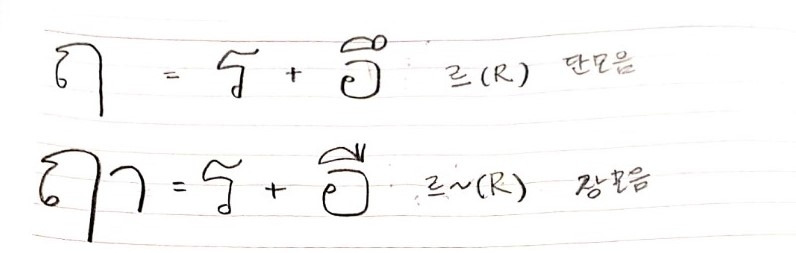 ฤ = ร + อึ 르(R) 단모음
ฤา = ร + อื 르~(R) 장모음